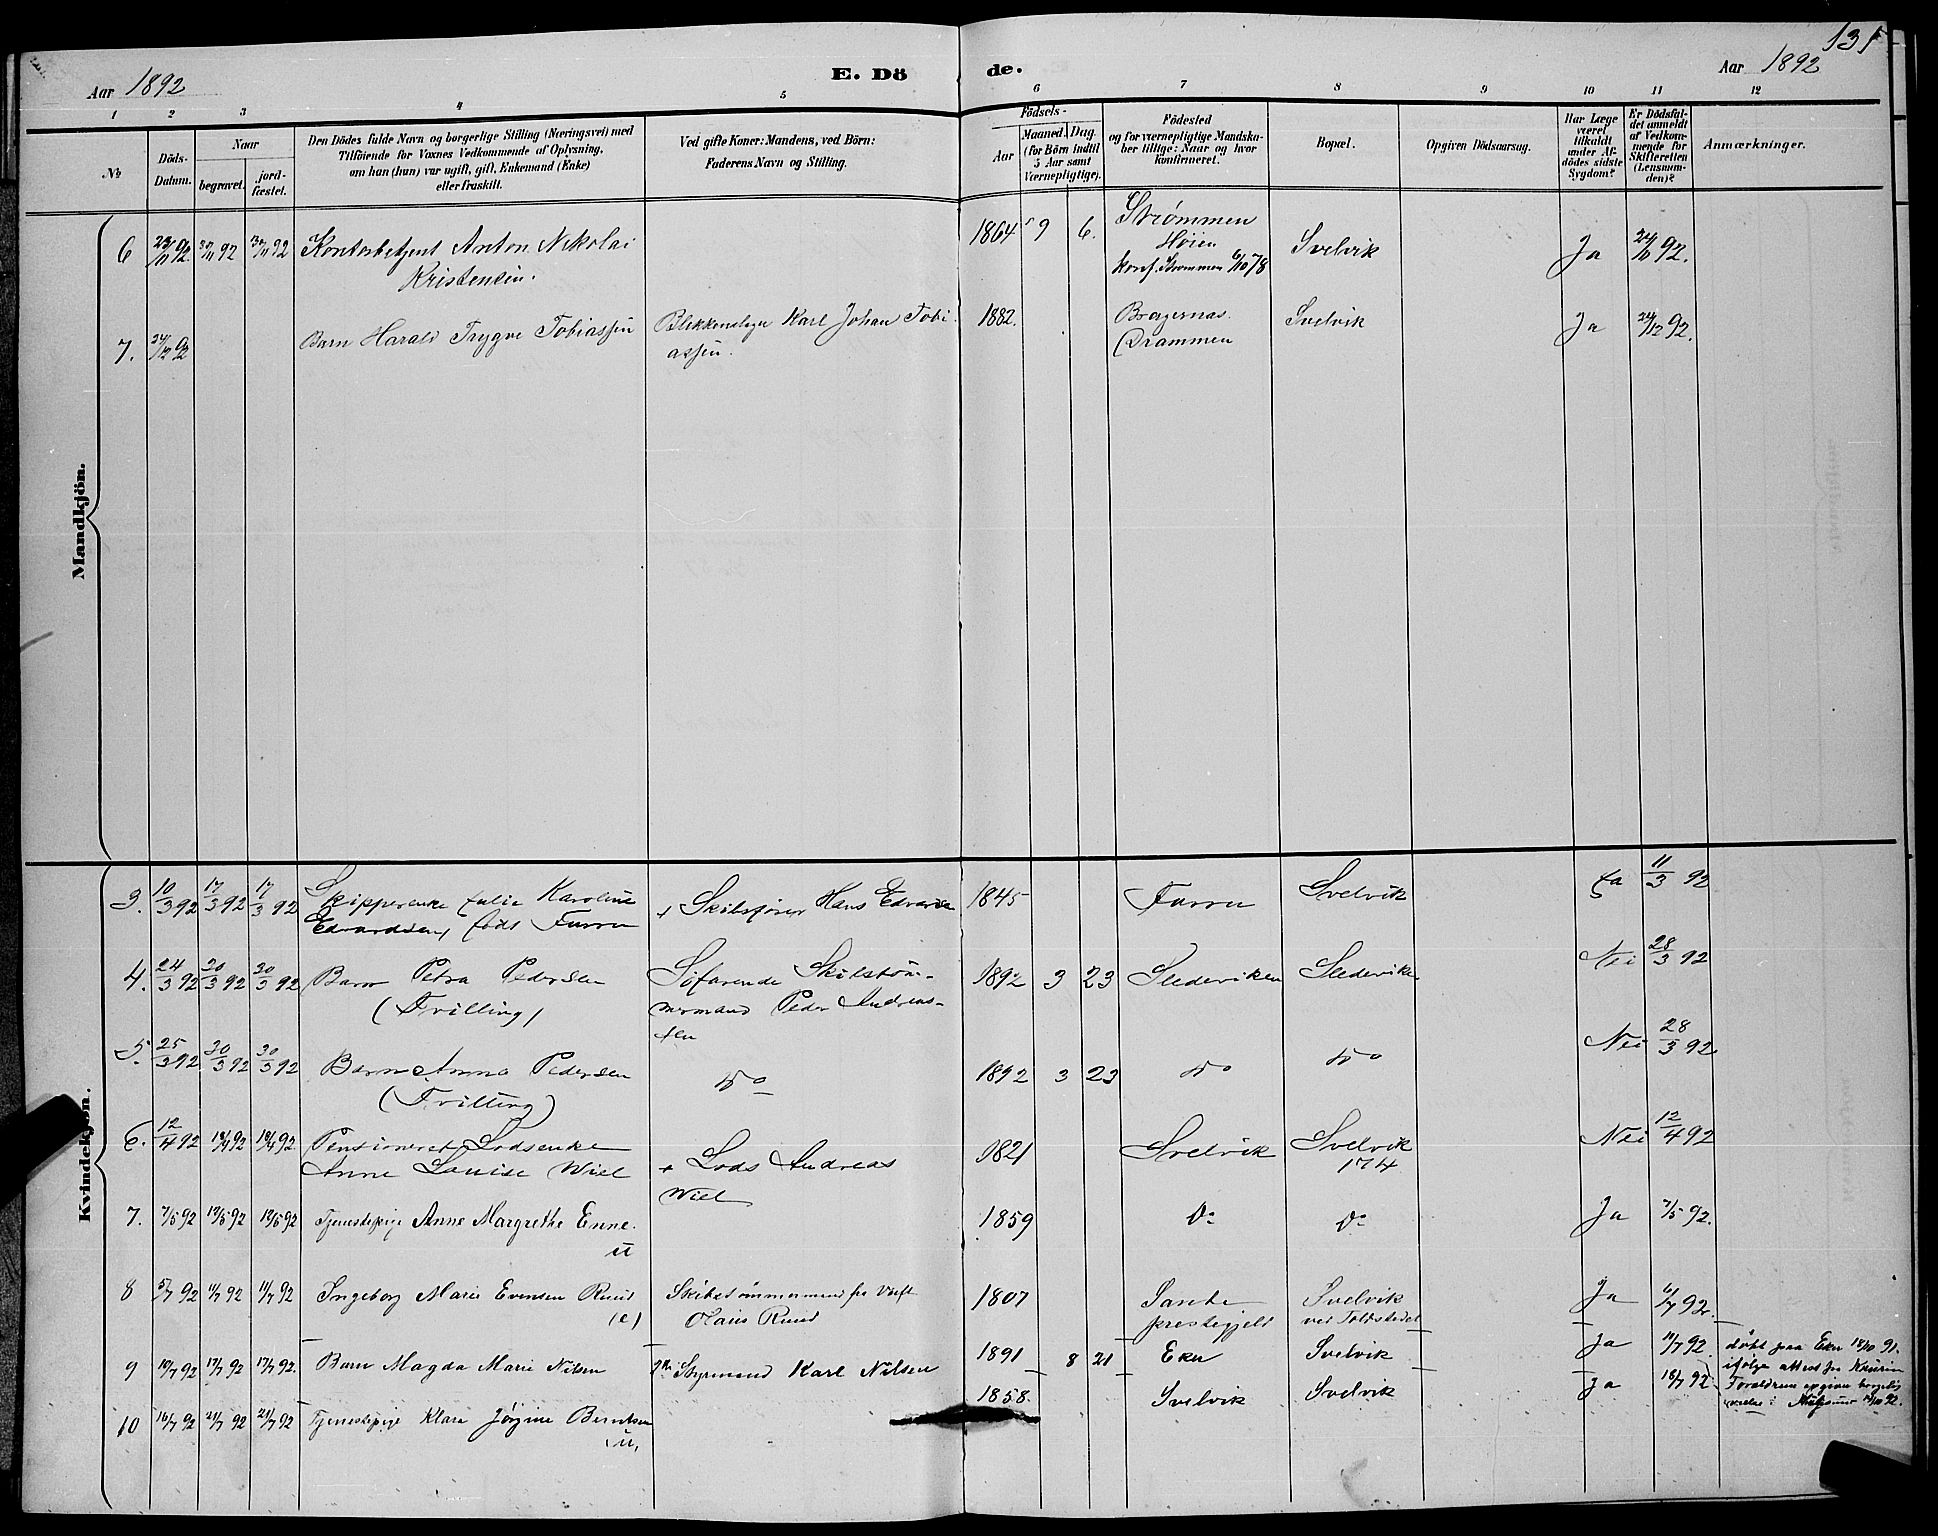 131
Aar 1892
E. Dö de.
Aar 1892
1 2 3 4 5 6 7 8 9 10 11 12
No
Döds-Datum.
Naar
begravet.
jord-fæstet.
Den Dödes fulde Navn og borgerlige Stilling (Næringsvei) med
Tilföiende for Voxnes Vedkommende af Oplysning,
om han (hun) var ugift, gift, Enkemand (Enke)
eller fraskilt.
Ved gifte Koner: Mandens, ved Börn:
Faderens Navn og Stilling.
Födsels-
Aar
Maaned. Dag.
(for Börn indtil
5 Aar samt
Værnepligtige).
Födested
og for værnepligtige Mandska-
ber tillige: Naar og hvor
konfirmeret.
Bopæl.
Opgiven Dödsaarsag.
Har Læge
været
tilkaldt
under Af-
dödes sidste
Sygdom?
Er Dödsfal-
det anmeldt
af Vedkom-
mende for
Skifteretten
(Lensman-
den)?
Anmærkninger.
Mandkjön.
6 23/11 92 30/11 92 30/11 92 Kontorbetjent Anton Nikolai 1864 9 6. Strømmen Svelvik Ja 92.
Kristensen. Høien
konf. Strømmen 6/10 78
7. 92 Barn Harald Trygve Tobiassen Blikkenslager Karl Johan Tobi- 1882. Bragernæs. Svelvik Ja 24/12 92.
assen. Drammen
Kvindekjön.
3. 10/3 92 17/3 92 17/3 92 Skipperenke Julie Karoline + Skibsfører Hans Edvardsen 1845 Furru Svelvik Ja 11/3 92
Edvardsen, føds Furru
4. 24/3 92 30/3 92 30/3 92 Barn Petra Pedersen Søfarende Skibstøm- 1892 3 23 Slederviken Sledervike Nei 28/3 92
(Trilling) mermand Peder Andreas-
sen
5. 25/3 92 30/3 92 30/3 92 Barn Anna Pedersen do 1892 3 23 do do Nei 28/3 92.
(Trilling)
6. 12/4 92 18/4 92 18/4 92 Pensioneret Lodsenke + Lods Andreas 1821 Svelvik Svelvik Nei 12/4 92
Anne Louise Wiel Wiel 174
7. 7/5 92 12/5 92 12/5 92 Tjenestepige Anne Margrethe Enne. 1859 do do Ja 7/5 92.
u
8 5/7 92 11/7 92 11/7 92 Ingeborg Marie Evensen Ruud Skibstømmermand fra Værft 1807 Sande Svelvik Ja 6/7 92.
(e) Olaus Ruud prestegjeld ved Toldstedet
9 10/7 92 17/7 92 17/7 92. Barn Magda Marie Nilsen Styrmand Karl Nilsen 1891 8 21 Eker Svelvik Ja 11/7 92. døbt paa Eker 18/10 91.
ifølge attest fra
Forældrene
10 16/7 92 21/7 92 21/7 92 Tjenestepige Klara Jørgine Berntsen 1858. Svelvik Svelvik Ja 16/7 92
u.